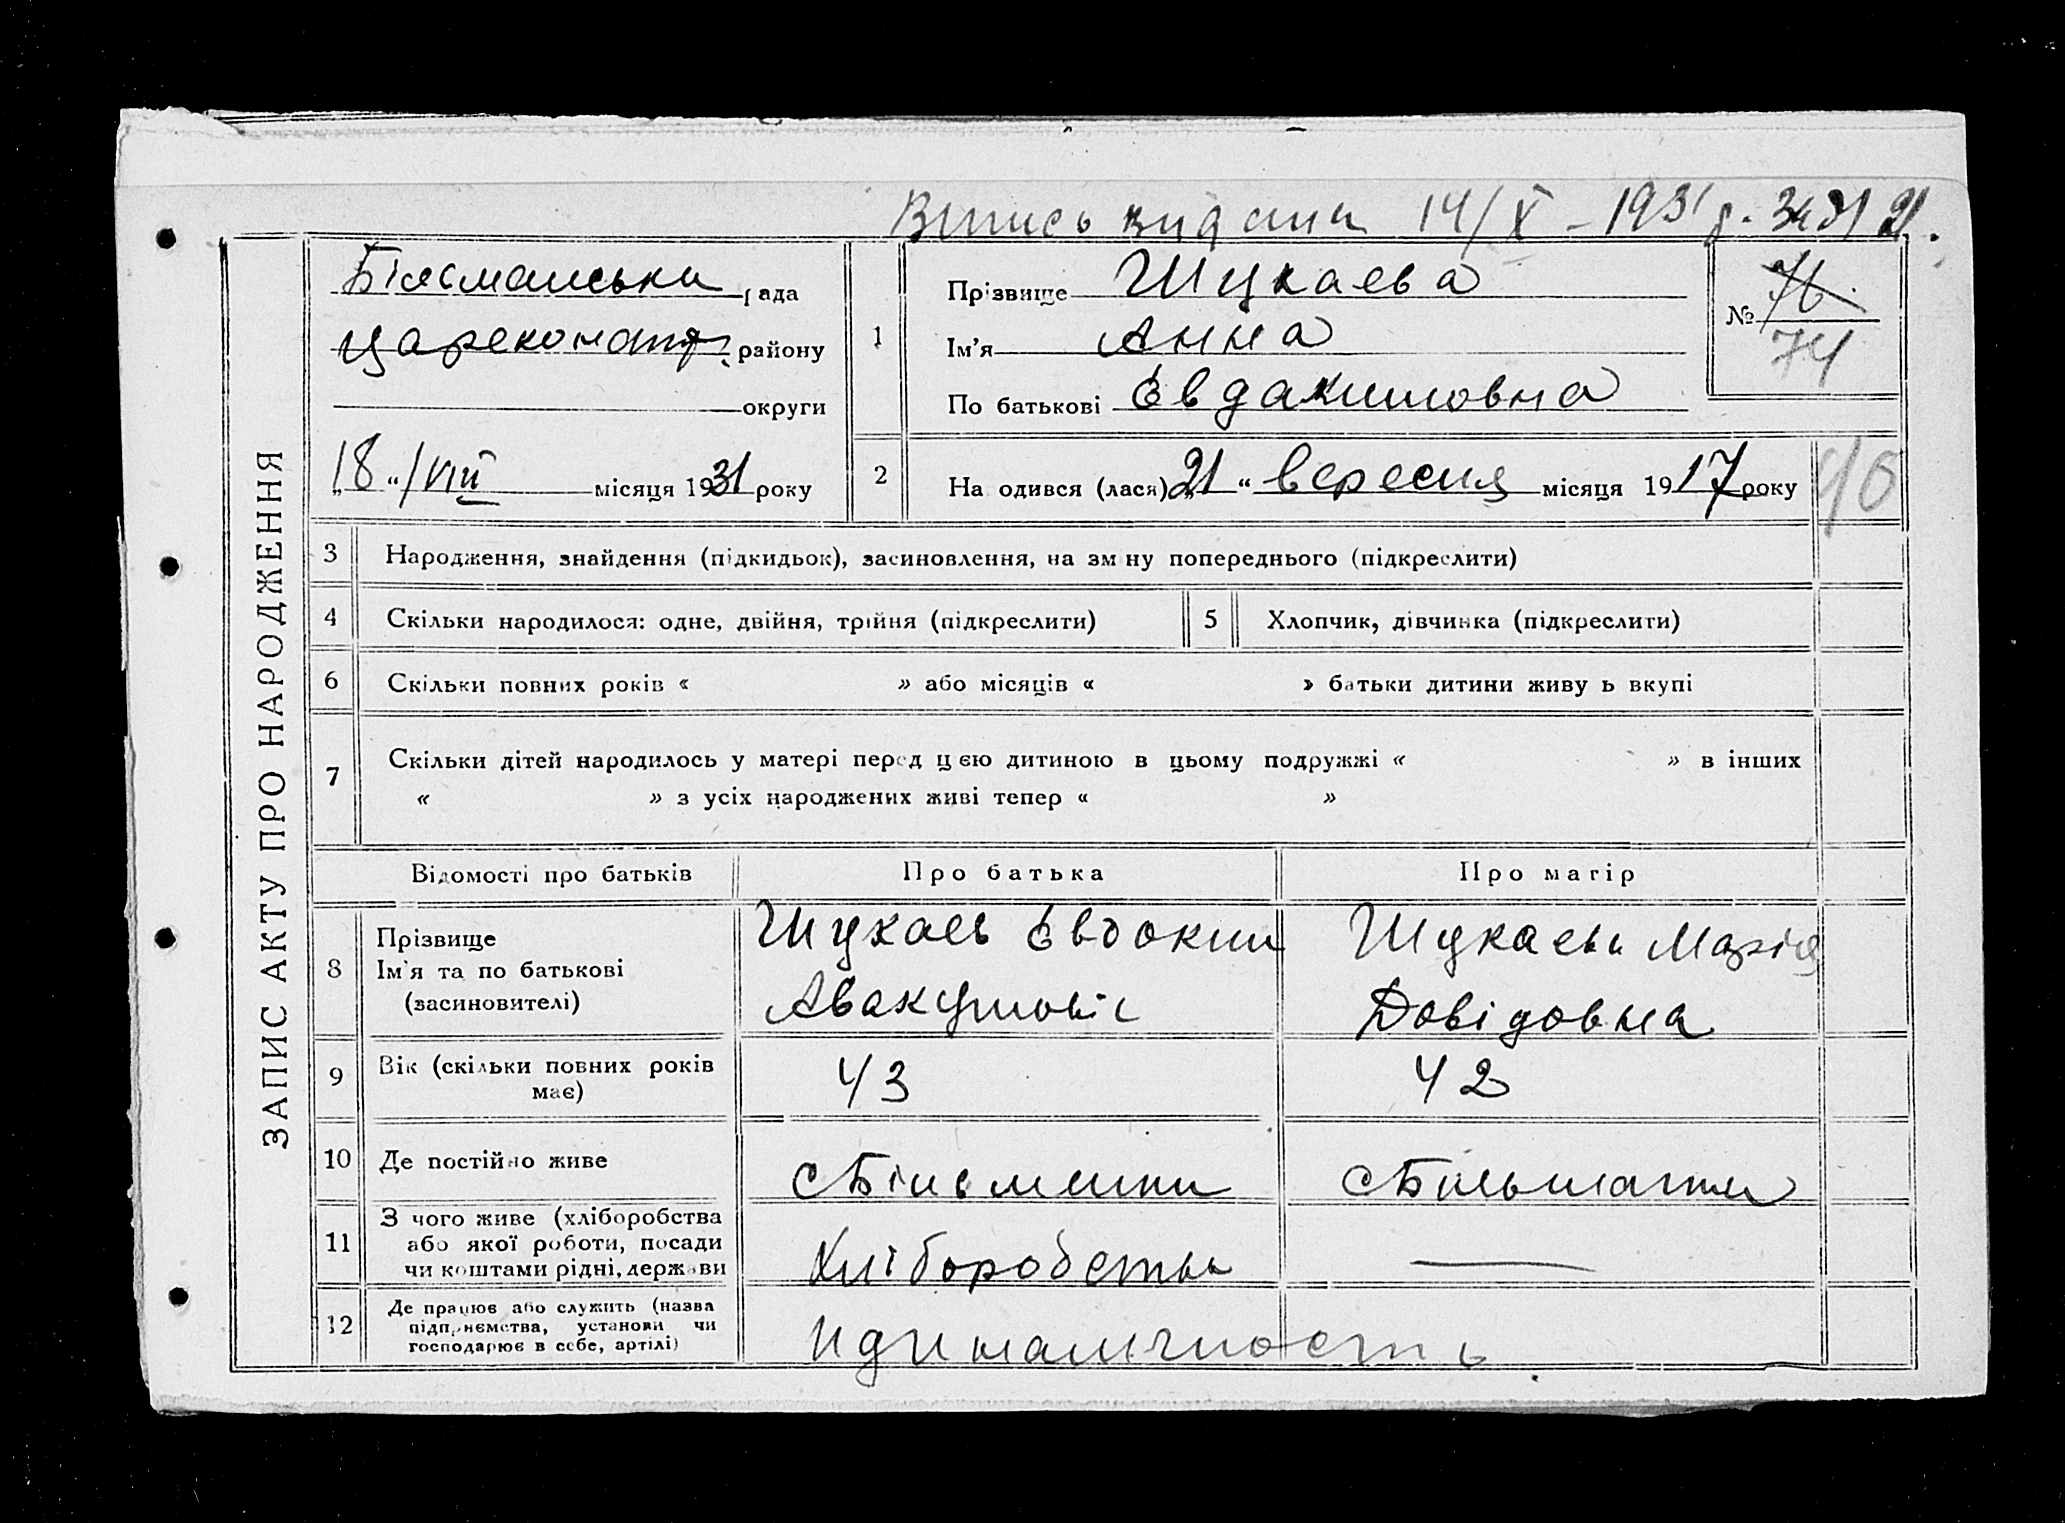 Випись видана 14/X – 1931 р. за № 21.
ЗАПИС АКТУ ПРО НАРОДЖЕННЯ
Більманська рада
Цареконст. району
округи
„18“/VIII місяця 1931 року
1
Прізвище Шукаева
Ім'я Анна
По батькові Евдакимовна
№ 76
74
2
На одився (лася) „21“ вересня місяця 1917 року
16
3 Народження, знайдення (підкидьок), засиновлення, на зм ну попереднього (підкреслити)
4 Скільки народилося: одне, двійня, трійня (підкреслити) 5 Хлопчик, дівчинка (підкреслити)
6 Скільки повних років « » або місяців « » батьки дитини живу ь вкупі
7 Скільки дітей народилось у матері перед цією дитиною в цьому подружжі « » в інших
« » з усіх народжених живі тепер « »
Відомості про батьків Про батька Про матір
8 Прізвище
Ім'я та по батькові
(засиновителі)
Шукаев Евдоким
Авакумовіч
Шукаева Марія
Довідовна
9 Вік (скільки повних років
має)
43 42
10 Де постійно живе
с Більманка с Більманка
11 З чого живе (хліборобства
або якої роботи, посади
чи коштами рідні, держави
Хліборобства —
12 Де працює або служить (назва
підприємства, установи чи
господарює в себе, артілі)